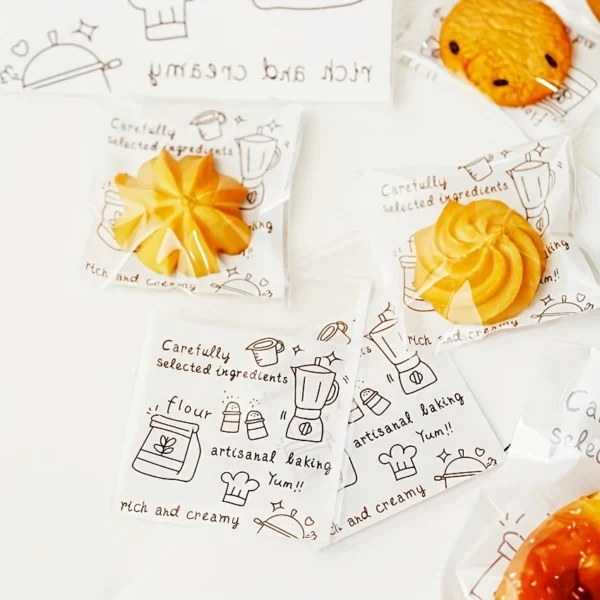 rich and creamy
Carefully
selected ingredients
rich and creamy
Carefully
selected ingredients
Yum!!
rich and creamy
Carefully
selected ingredients
flour
artisanal baking
Yum!!
rich and creamy
artisanal baking
Yum!!
and creamy